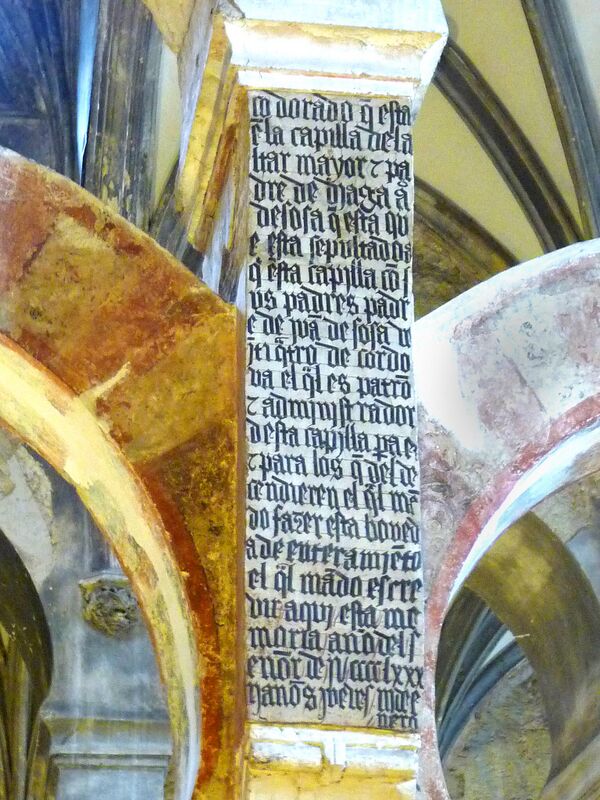 co dorado q̄ esta
ē la capilla de la
ltar mayor ⁊ pa
dre de diaga g̃
de sosa q̄ esta qu
e esta sepultado a
q̄ esta capilla cō s
us padres padr
e de juā de sosa ve
īti q̃tro de cordo
va el q̄l es patrō
⁊ administrador
desta capilla p̄a e
⁊ para los q̄ del de
cendieren el q̄l mā
do fazer esta boved
a de enteramiēto
el q̄l mādo escre
vir aqui esta me
moria año del s
enõr de ccccLxxx
años de e
nero